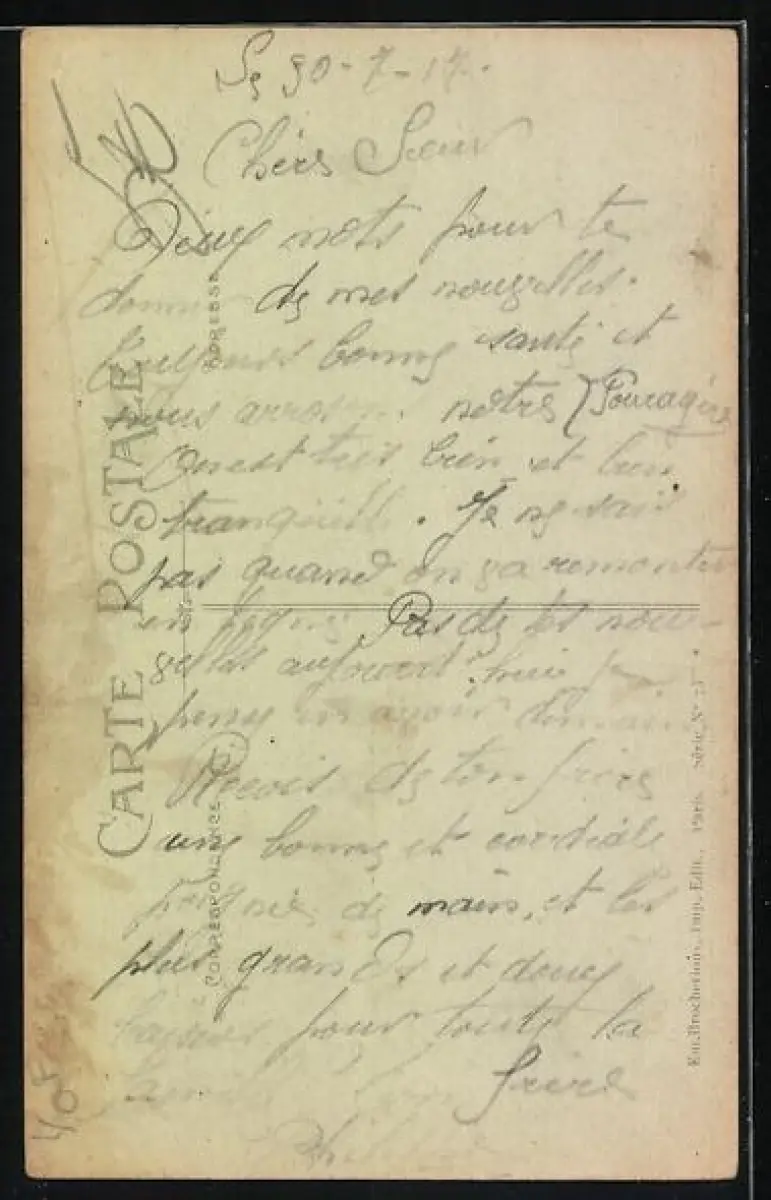 Le 30-7-17.
Chère Soeur
Deux mots pour te
donner de mes nouvelles.
Toujours bonne santé et
nous notre
On est très bien et bien
tranquille. Je ne sais
pas quand on va remonter
en Pas de tes nou-
velles aujourd'hui je
pense en avoir demain
Recois de ton frère
une bonne et cordiale
poignée de main, et les
plus grands et doux
baisers pour toute la
famille Ton frère
CARTE POSTALE
CORRESPONDANCE
ADRESSE
Em. Brocherioux, Imp. Edit., Paris. Série N°
40